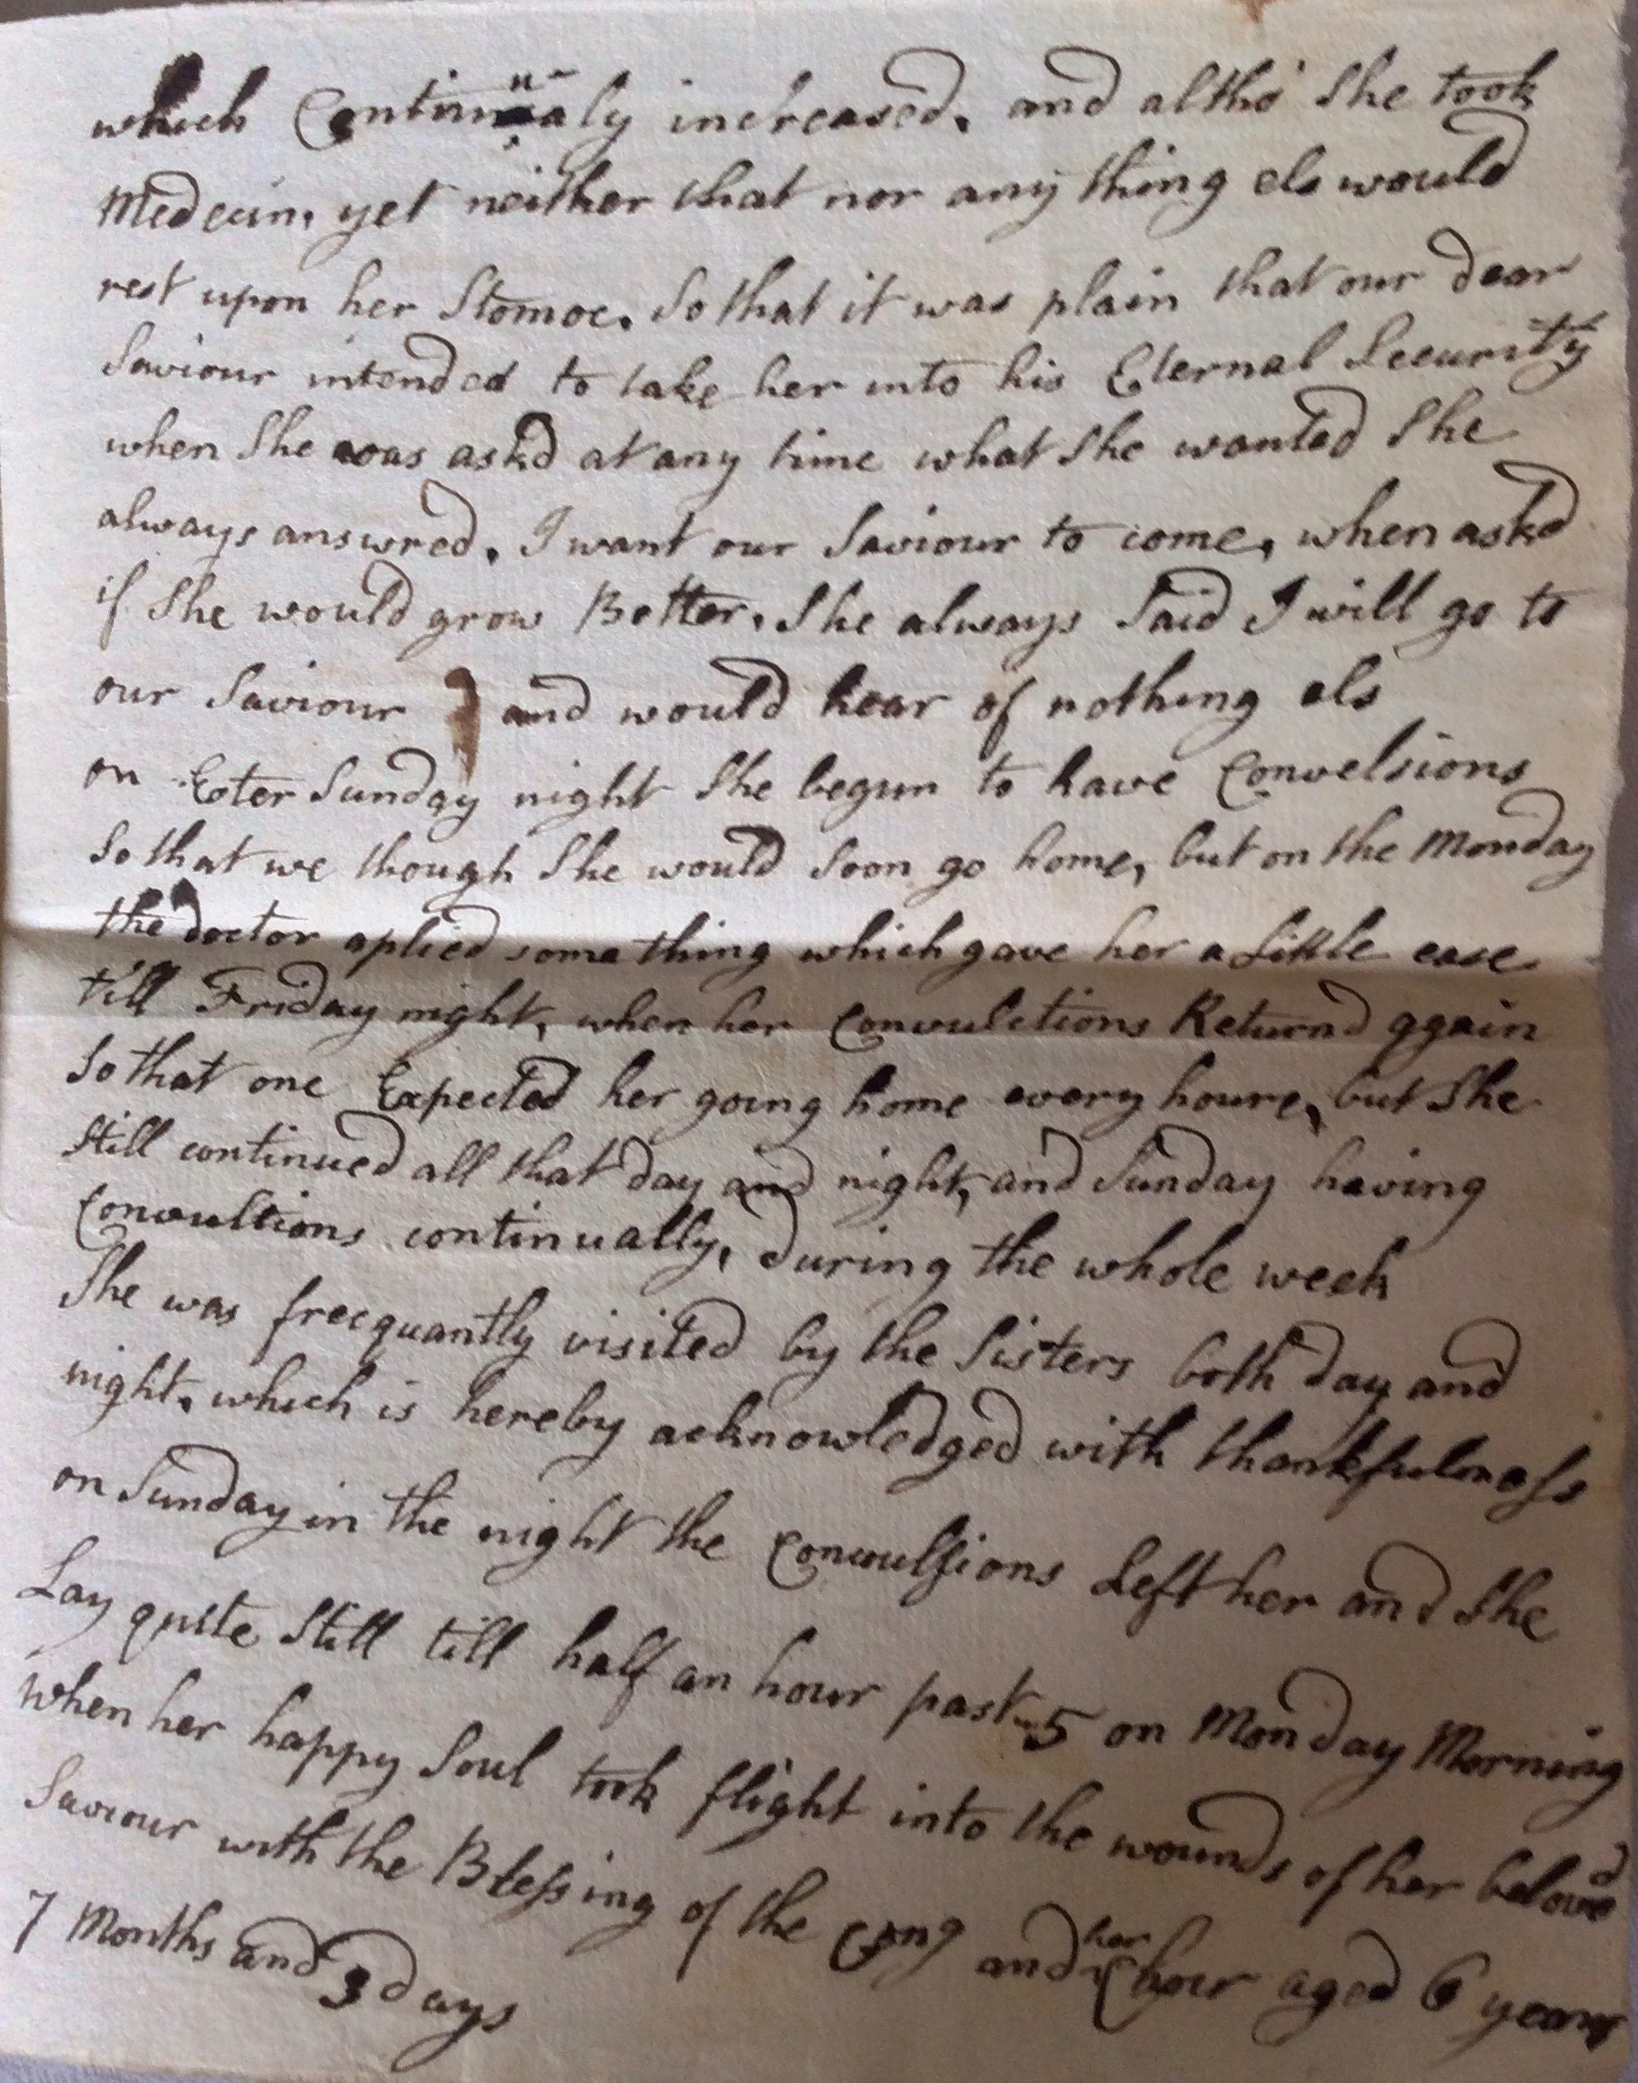 which Continualy increased, and altho' She took
Medecin, yet neither that nor any thing els would
rest upon her Stomoc. So that it was plain that our dear
Saviour intended to take her into his Eternal Security
when She was askd at any time what She wanted She
always answred, I want our Saviour to come, when askd
if She would grow Better, She always Said I will go to
our Saviour and would hear of nothing els
on Ester Sunday night She begun to have Convelsions
So that we though She would Soon go home, but on the Monday
the doctor aplied some thing which gave her a Little ease
till Friday night, when her Convultions Returnd again
So that one Expected her going home every houre, but She
Still continued all that day and night, and Sunday having
Convultions continually, during the whole week
She was frecquantly visited by the Sisters both day and
night, which is hereby acknowledged with thankfulness
on Sunday in the night the Convulsions Left her and She
Lay quite Still till half an hour past 5 on Monday Morning
when her happy Soul took flight into the wounds of her belovd
Saviour with the Blessing of the Cong and her Chour aged 6 years
7 Months and 3 days